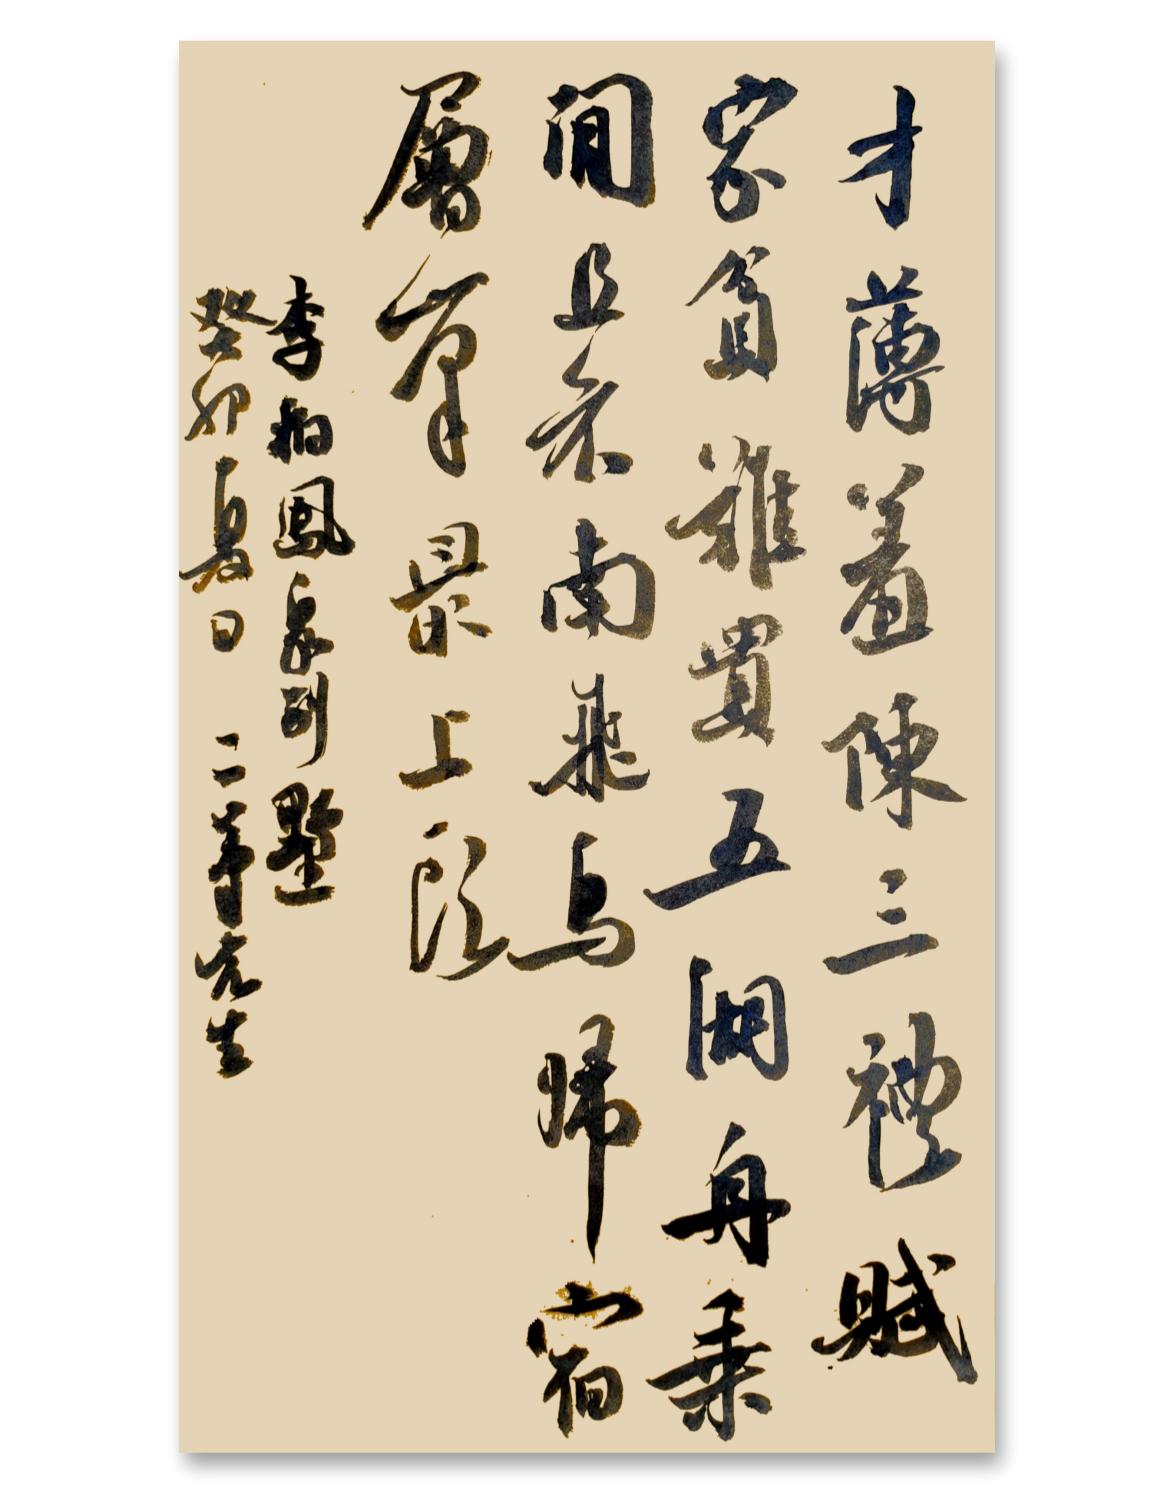 才薄羞陳三禮賦
家貧難買五湖舟乘
閒且南飛与歸宿
層峯最上頭
李柏鳳泉別墅
癸卯夏日 二先生